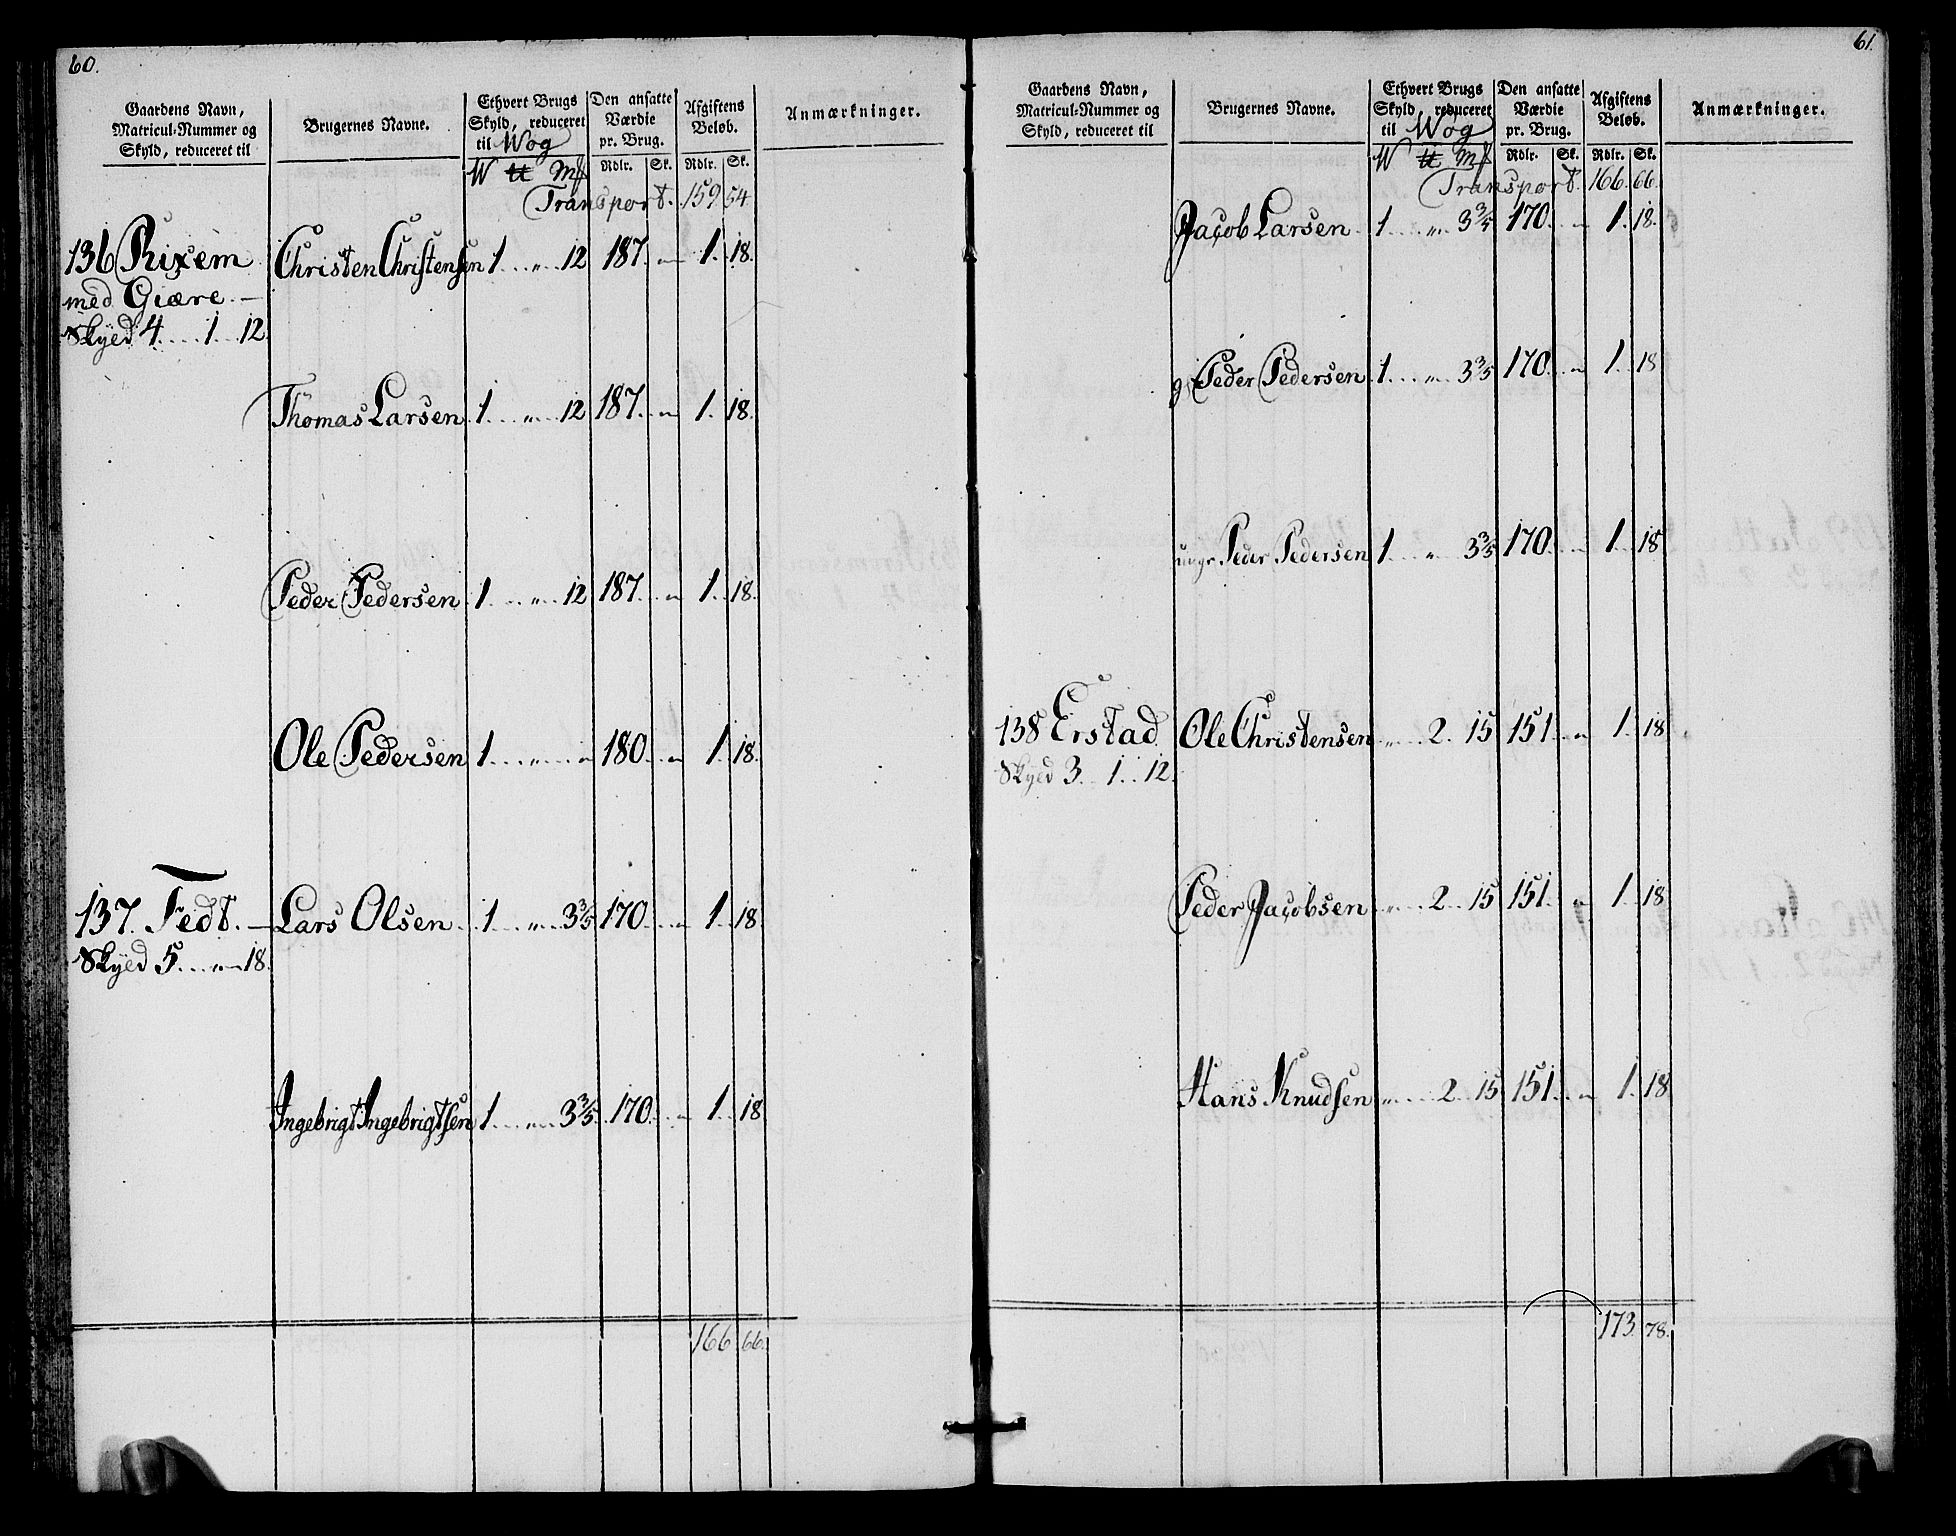 60.
Gaardens Navn, Matricul-Nummer og Skyld, reduceret til
Brugernes Navne.
Ethvert Brugs Skyld, reduceret til Wog
W ℔ Mk
Den ansatte Værdie pr. Brug.
Rdlr. Sk.
Afgiftens Beløb.
Rdlr. Sk.
Anmærkninger.
Transport. 159 54
136 Rixem Christen Christensen 1 . . . „ . . 12 187. „ 1. 18.
med Giære. —
Skyld 4 . . . . 1 . . . 12.
Thomas Larsen 1 . . . „ . . 12 187. „ 1. 18.
Peder Pedersen 1 . . . „ . . 12 187. „ 1. 18.
Ole Pedersen 1 . . . „ . . „ 180. „ 1. 18.
137. Fedt. — Lars Olsen 1 . . „ . . 3 3/5 170. „ 1. 18.
Skyld 5 . . . „ 18.
Ingebrigt Ingebrigtsen 1 . . . „ . . 3 3/5 170. „ 1. 18
166 66.
61.
Gaardens Navn, Matricul-Nummer og Skyld, reduceret til
Brugernes Navne.
Ethvert Brugs Skyld, reduceret til Wog
W ℔ Mk
Den ansatte Værdie pr. Brug.
Rdlr. Sk.
Afgiftens Beløb.
Rdlr. Sk.
Anmærkninger.
Transport. 166. 66.
Jacob Larsen 1 . . . „ . 3 3/5 170. „ 1. 18.
Peder Pedersen 1 . . . „ . . 3 3/5 170. „ 1. 18
ungr Peder Pedersen 1 . . . „ . 3 3/5 170. „ 1. 18
138 Erstad Ole Christensen „ . . . 2. 15 151. „ 1. 18
Skyld 3. . 1 . . 12.
Peder Jacobsen „ . . . 2 . . 15 151. „ 1. 18
Hans Knudsen „ . . . 2 . . 15 151. „ 1. 18
173. 78.